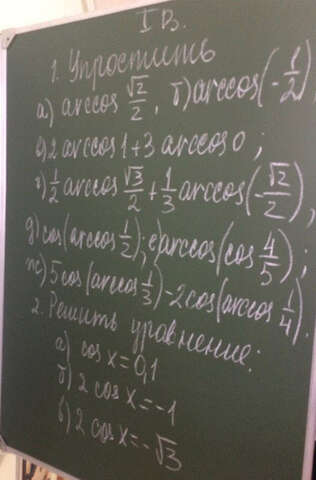 I В.
1. Упростить
а) arccos √2/2, б) arccos(-1/2),
в) 2 arccos 1 + 3 arccos 0;
г) 1/2 arccos √3/2 + 1/3 arccos(-√2/2),
д) cos(arccos 1/2); е) arccos(cos 4/5);
ж) 5cos(arccos 1/3) - 2cos(arccos 1/4).
2. Решить уравнение:
а) cos x = 0,1
б) 2 cos x = -1
в) 2 cos x = -√3